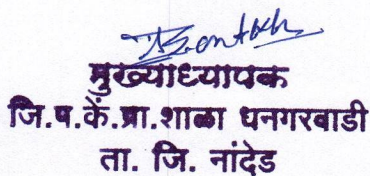 मुख्याध्यापक
जि.प.कें.प्रा.शाळा धनगरवाडी
ता. जि. नांदेड